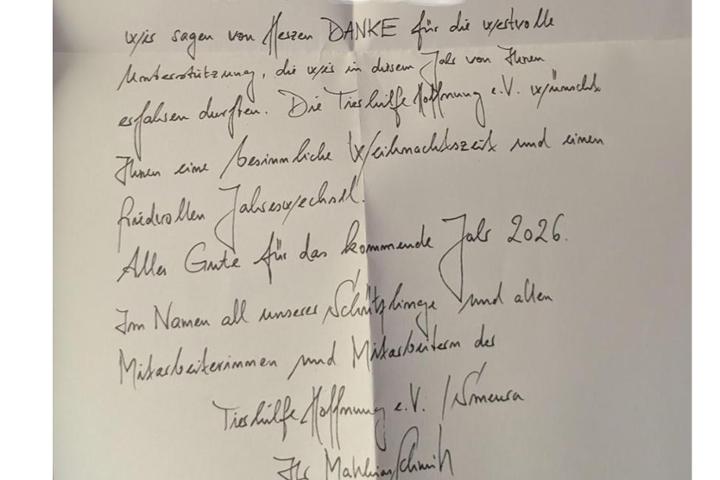 wir sagen von Herzen DANKE für die wertvolle
Unterstützung, die wir in diesem Jahr von Ihnen
erfahren durften. Die Tierhilfe Hoffnung e.V. wünscht
Ihnen eine besinnliche Weihnachtszeit und einen
friedvollen Jahreswechsel.
Alles Gute für das kommende Jahr 2026.
Im Namen all unserer Schützlinge und allen
Mitarbeiterinnen und Mitarbeitern der
Tierhilfe Hoffnung e.V. / Smeura
Ihr Matthias Schmidt